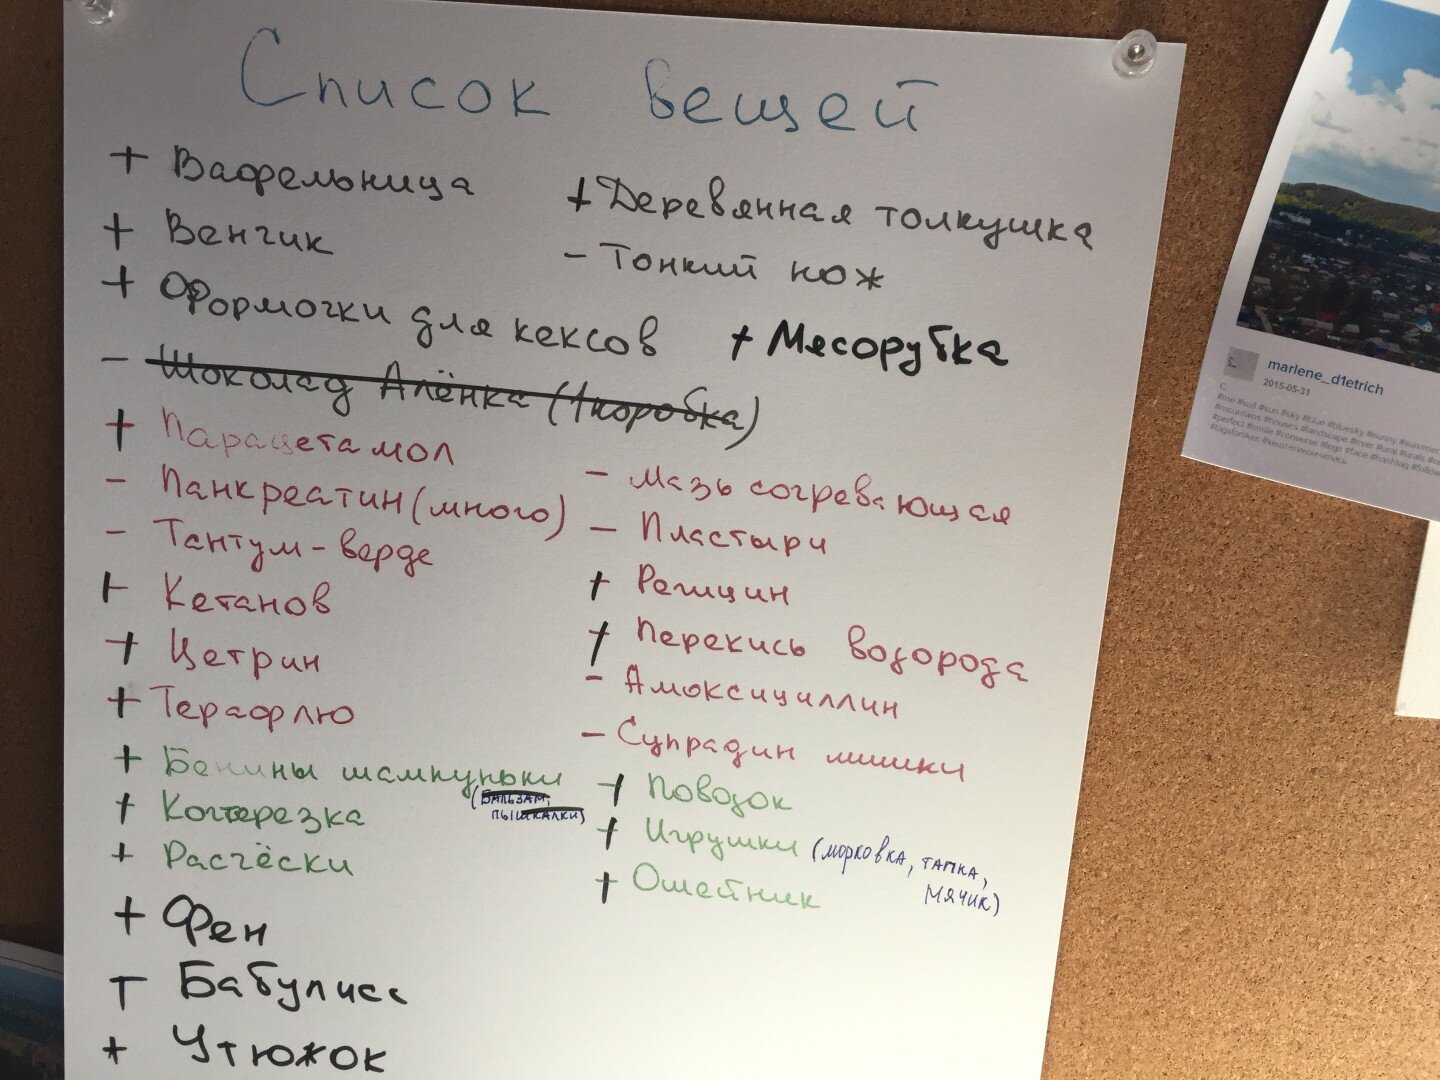 Список вещей
+ Вафельница
+ Деревянная толкушка
+ Венчик
- Тонкий нож
+ Формочки для кексов
+ Месорубка
- Шоколад Алёнка (1 коробка)
+ Парацетамол
- Панкреатин (много)
- Тантум-верде
+ Кетанов
+ Цетрин
+ Терафлю
- Мазь согревающая
- Пластыри
+ Регицин
+ Перекись водорода
- Амоксициллин
- Супрадин мишки
+ Бенины шампуньки
(бальзам,
пышкалки)
+ Когтерезка
+ Расчёски
+ Поводок
+ Игрушки (морковка, тапка,
мячик)
+ Ошейник
+ Фен
+ Бабулисс
+ Утюжок
marlene_d1etrich
2015-05-31
#me #suit #sun #sky #blue #bluesky #sunny #summer
#mountains #houses #landscape #river #ural #urals
#perfect #smile #converse #legs #face #hashtag #follow
#tagsforlikes #хештегикончились